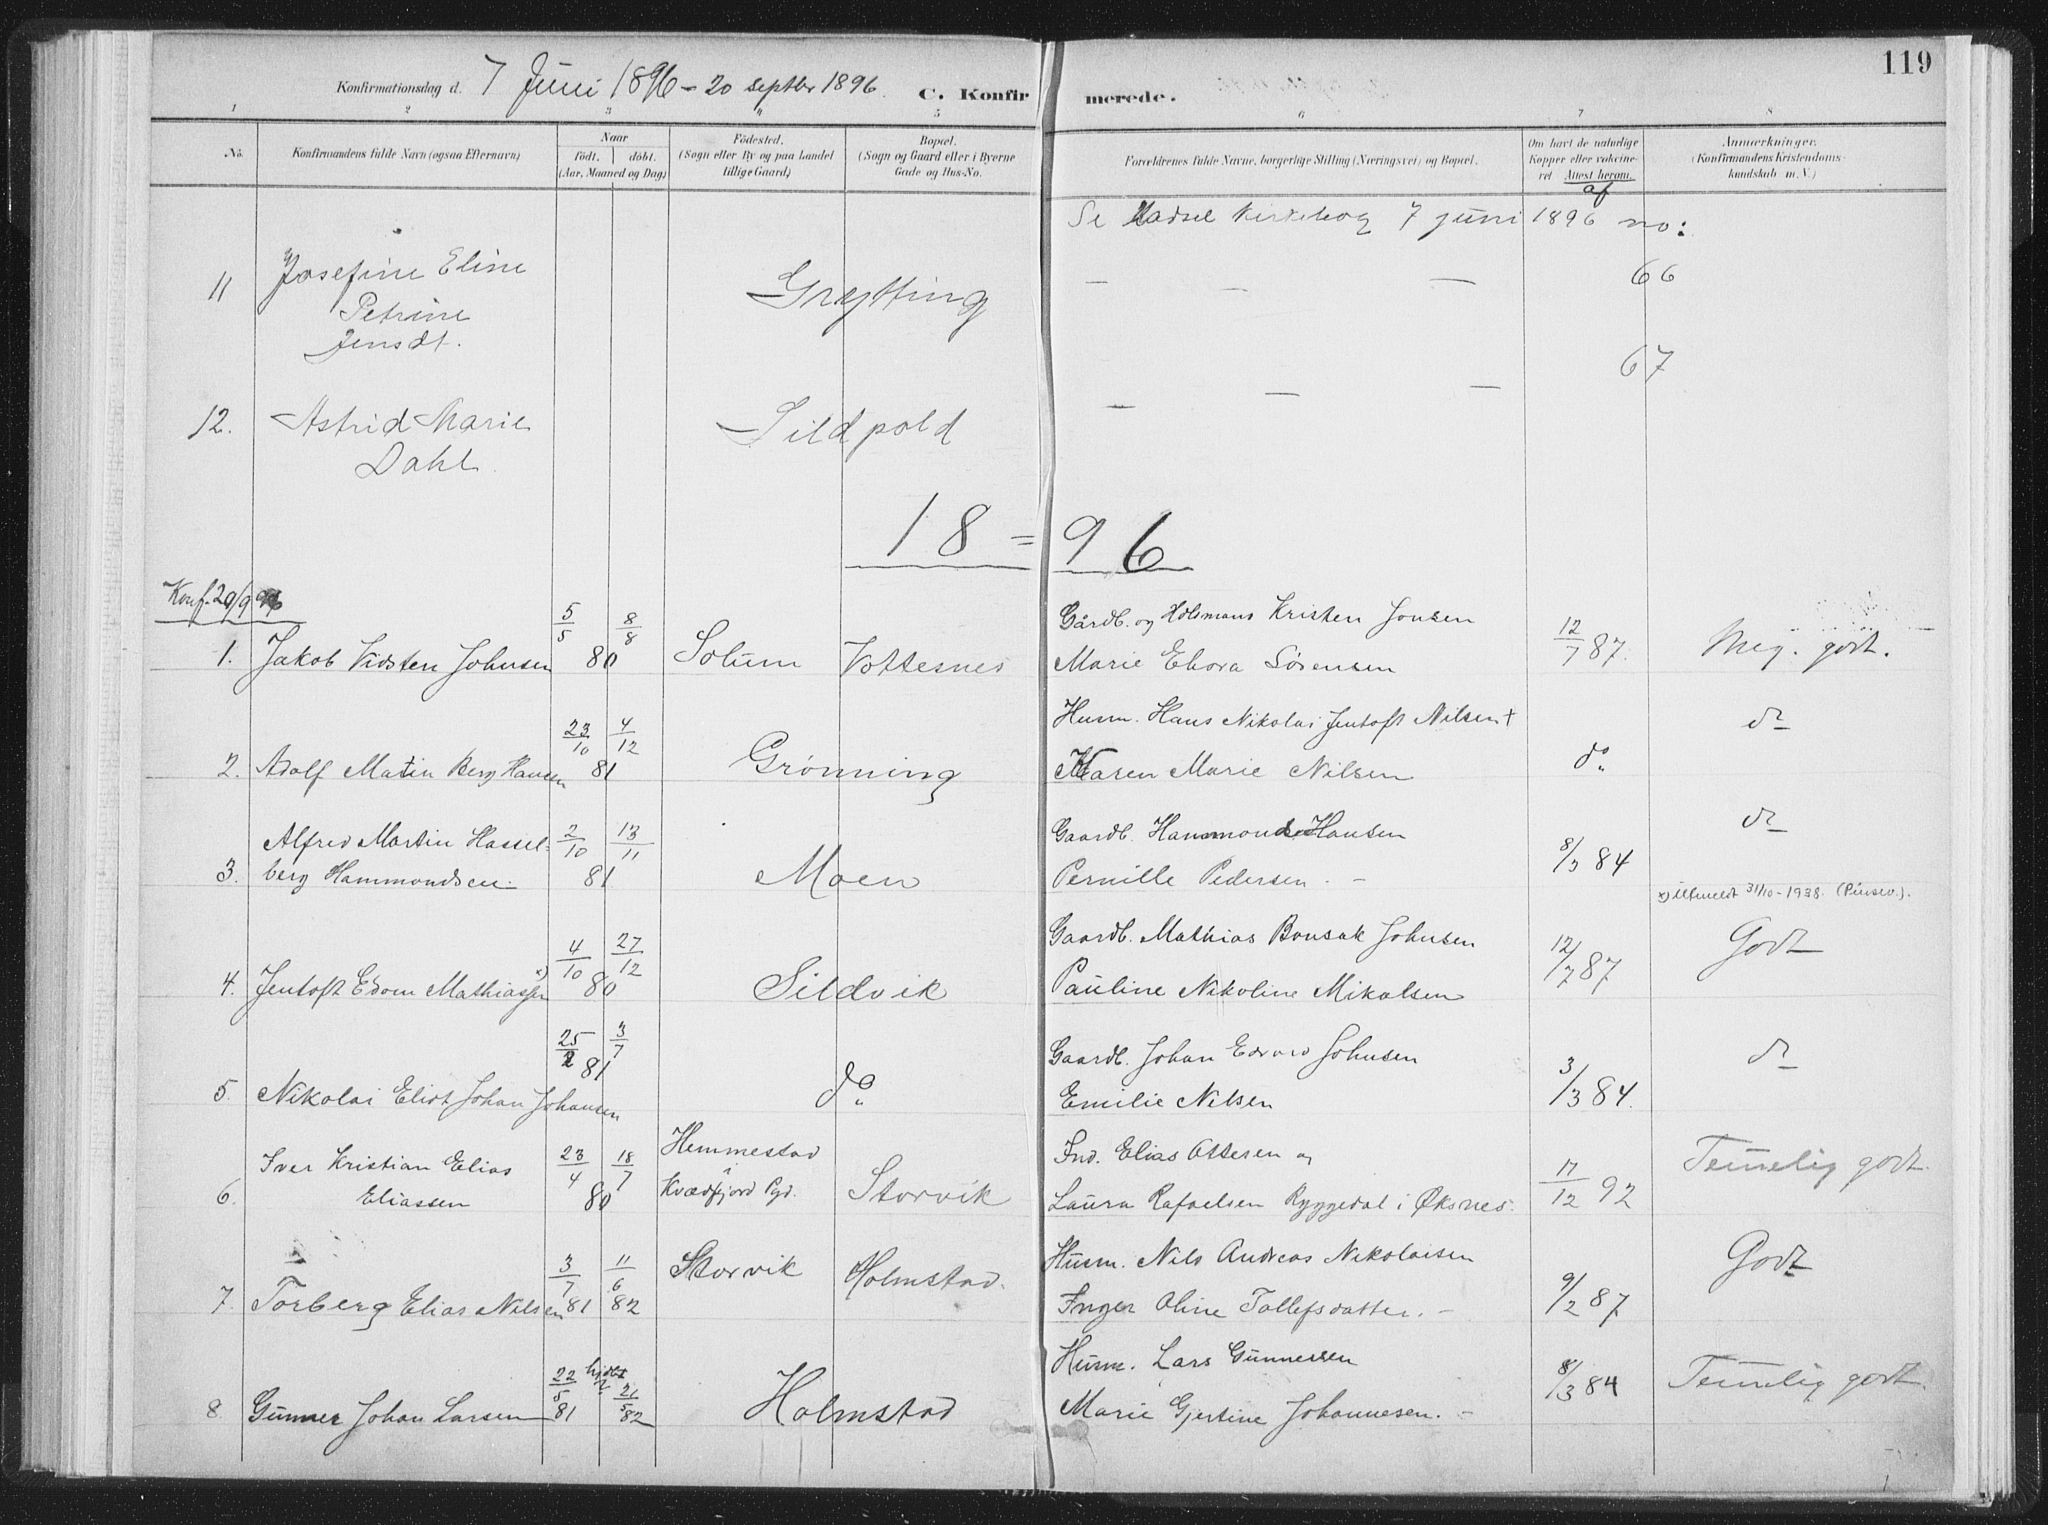 119
Konfirmationsdag d. 7 Juni 1896 - 20 septbr 1896. C. Konfirmerede.
1 2 3 4 5 6 7 8
No. Konfirmandens fulde Navn (ogsaa Efternavn) Naar født. døbt. (Aar, Maaned og Dag) Fødested. (Sogn eller By og paa Landet tillige Gaard) Bopæl. (Sogn og Gaard eller i Byerne Gade og Hus-No. Forældrenes fulde Navne, borgerlige Stilling (Næringsvei) og Bopæl. Om havt de naturlige Kopper eller vakcineret Attest herom. af Anmærkninger. (Konfirmandens Kristendomskundskab m. V.)
Se Hadsel Kirkebog 7 juni 1896 no:
11 Josefine Eline Grytting — — — 66
Petrine
Jensdt.
12. Astrid Marie Sildpold — — — 67
Dahl.
18 = 96
Konf. 20/9 96
Gårdb. og Holsmans Kristen Jonsen
1. Jakob Vidsten Johnsen 5/5 80 8/8 Solum Vottesnes Marie Ehora Sørensen 12/7 87. Meg. godt.
Husm. Hans Nikolai Jentoft Nilsen +
2. Adolf Matin Berg Hansen 23/10 81 4/12 Grønning Karen Marie Nilsen do do
Alfred Martin Hassel= 2/10 13/11 Gaardb. Hammond Hansen do
3. berg Hammondsen. 81 Moen Pernille Pedersen. - 8/3 84
x) Utmeldt 31/10-1938. (Pinsev.).
Gaardb. Mathias Bonsak Johnsen
4. Jentoft Edom Mathiassen x) 4/10 80 27/12 Sildvik Pauline Nikoline Mikalsen 12/7 87 Godt
Gaardb. Johan Edvard Johnsen
5. Nikolai Eliot Johan Johansen 25/2 81 3/7 do Emilie Nilsen 3/3 84. do
Iver Kristian Elias 23/4 18/7 Hemmestad i Ind. Elias Ottesen og Temelig godt.
6. Eliassen 80 Kvædfjord Pgd. Storvik Laura Rafaelsen Ryggedal i Øksnes. 17/12 92
Husm. Nils Andreas Nikolaisen
7. Torberg Elias Nilsen 3/7 81 11/6 82 Storvik Holmstad. Inger Oline Tollefsdatter. - 9/2 87 Godt
Husm. Lars Gunnessen
8 Gunner Johan Larsen 22/5 81 hjdbt 21/5 82 Holmstad Marie Gjertine Johannesen. - 8/3 84 Temelig godt.